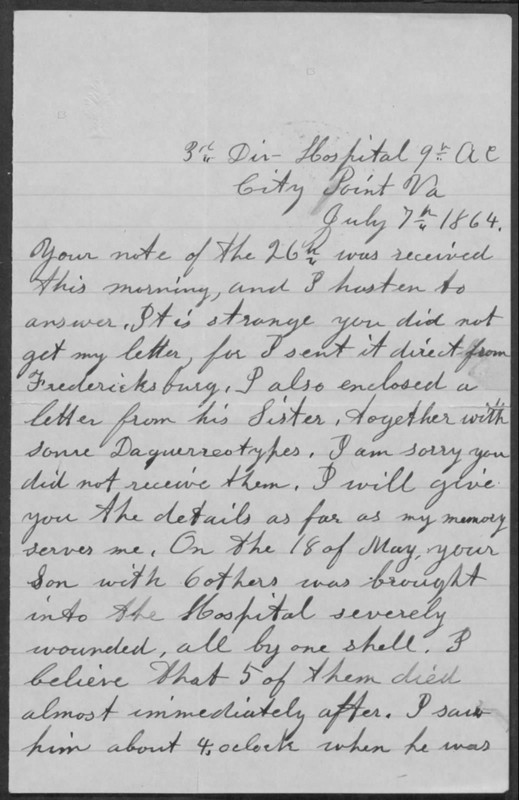 3rd Div- Hospital 9th A C
City Point Va
July 7th 1864.
Your note of the 26th was received
this morning, and I hasten to
answer. It is strange you did not
get my letter, for I sent it direct from
Fredericksburg. I also enclosed a
letter from his Sister, together with
some Daguerreotypes. I am sorry you
did not receive them. I will give
you the details as far as my memory
serves me. On the 18 of May, your
Son with 6 others was brought
into the Hospital severely
wounded, all by one shell. I
believe that 5 of them died
almost immediately after. I saw
him about 4, oclock when he was